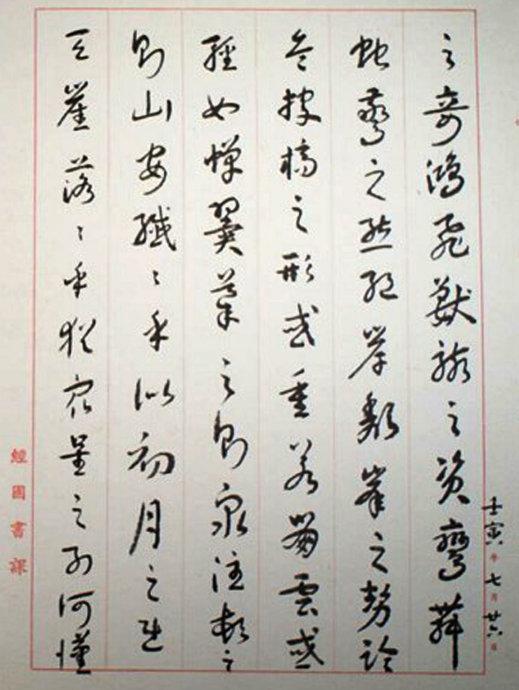 之奇鴻飛獸駭之資鸞舞
蛇驚之態絕岸頹峯之勢臨
危據槁之形或重若崩雲或
輕如蟬翼導之則泉注頓之
則山安纖〻乎似初月之出
天崖落〻乎猶眾星之列河漢
壬寅年七月廿六日
經國書課